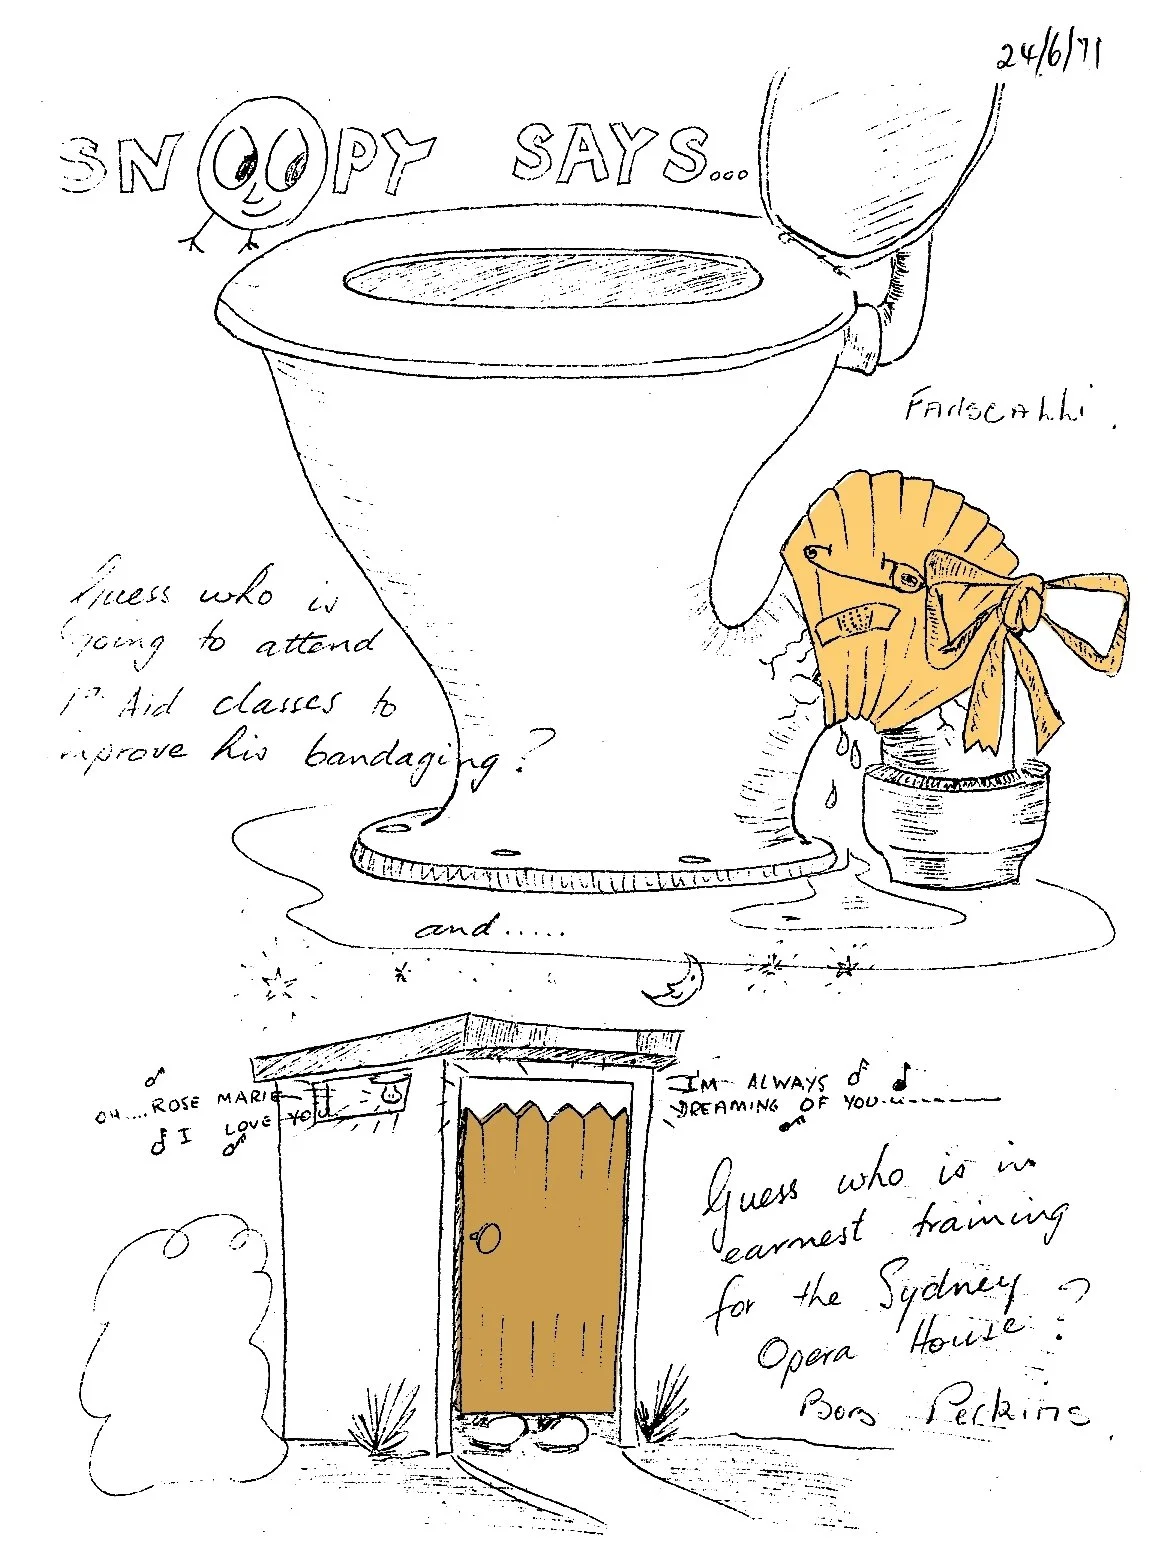 24/6/71
SNOOPY SAYS...
Guess who is
going to attend
1st Aid classes to
improve his bandaging?
and.....
OH....ROSE MARIE
I LOVE YOU
I'M ALWAYS
DREAMING OF YOU
Guess who is in
earnest training
for the Sydney
Opera House?
Perkins